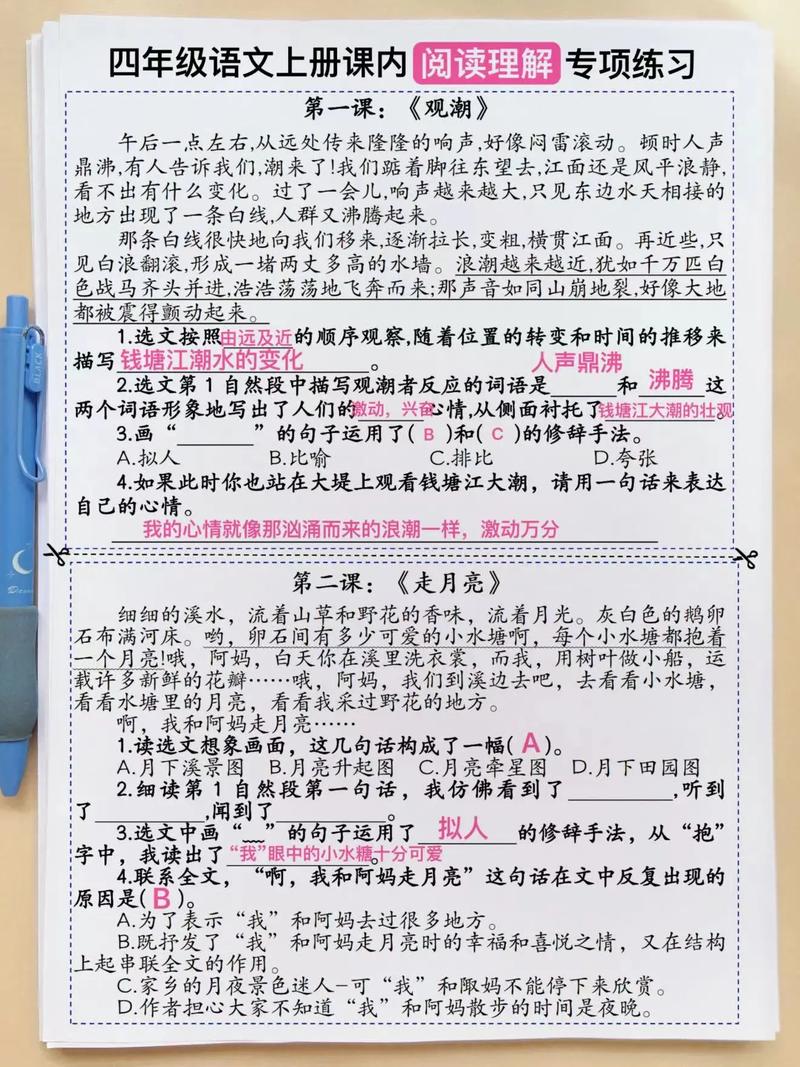 四年级语文上册课内 阅读理解 专项练习
第一课：《观潮》
午后一点左右,从远处传来隆隆的响声,好像闷雷滚动。顿时人声
鼎沸,有人告诉我们,潮来了!我们踮着脚往东望去,江面还是风平浪静,
看不出有什么变化。过了一会儿,响声越来越大,只见东边水天相接的
地方出现了一条白线,人群又沸腾起来。
那条白线很快地向我们移来,逐渐拉长,变粗,横贯江面。再近些,只
见白浪翻滚,形成一堵两丈多高的水墙。浪潮越来越近,犹如千万匹白
色战马齐头并进,浩浩荡荡地飞奔而来;那声音如同山崩地裂,好像大地
都被震得颤动起来。
1.选文按照由远及近的顺序观察,随着位置的转变和时间的推移来
描写钱塘江潮水的变化。
人声鼎沸
2.选文第1自然段中描写观潮者反应的词语是______和 沸腾 这
两个词语形象地写出了人们的激动，兴奋心情,从侧面衬托了钱塘江大潮的壮观。
3.画“______”的句子运用了( B )和( C )的修辞手法。
A.拟人 B.比喻 C.排比 D.夸张
4.如果此时你也站在大堤上观看钱塘江大潮，请用一句话来表达
自己的心情。
我的心情就像那汹涌而来的浪潮一样，激动万分
第二课：《走月亮》
细细的溪水，流着山草和野花的香味，流着月光。灰白色的鹅卵
石布满河床。哟，卵石间有多少可爱的小水塘啊，每个小水塘都抱着
一个月亮!哦，阿妈，白天你在溪里洗衣裳，而我，用树叶做小船，运
载许多新鲜的花瓣……哦，阿妈，我们到溪边去吧，去看看小水塘，
看看水塘里的月亮，看看我采过野花的地方。
啊，我和阿妈走月亮……
1.读选文想象画面，这几句话构成了一幅( A )。
A.月下溪景图 B.月亮升起图 C.月亮牵星图 D.月下田园图
2.细读第1自然段第一句话，我仿佛看到了__________,听到
了__________,闻到了__________。
3.选文中画“﹏”的句子运用了 拟人 的修辞手法，从“抱”
字中，我读出了“我”眼中的小水糖十分可爱。
4.联系全文，“啊，我和阿妈走月亮”这句话在文中反复出现的
原因是( B )。
A.为了表示“我”和阿妈去过很多地方。
B.既抒发了“我”和阿妈走月亮时的幸福和喜悦之情，又在结构
上起串联全文的作用。
C.家乡的月夜景色迷人-可“我”和陬妈不能停下来欣赏。
D.作者担心大家不知道“我”和阿妈散步的时间是夜晚。
BLACK